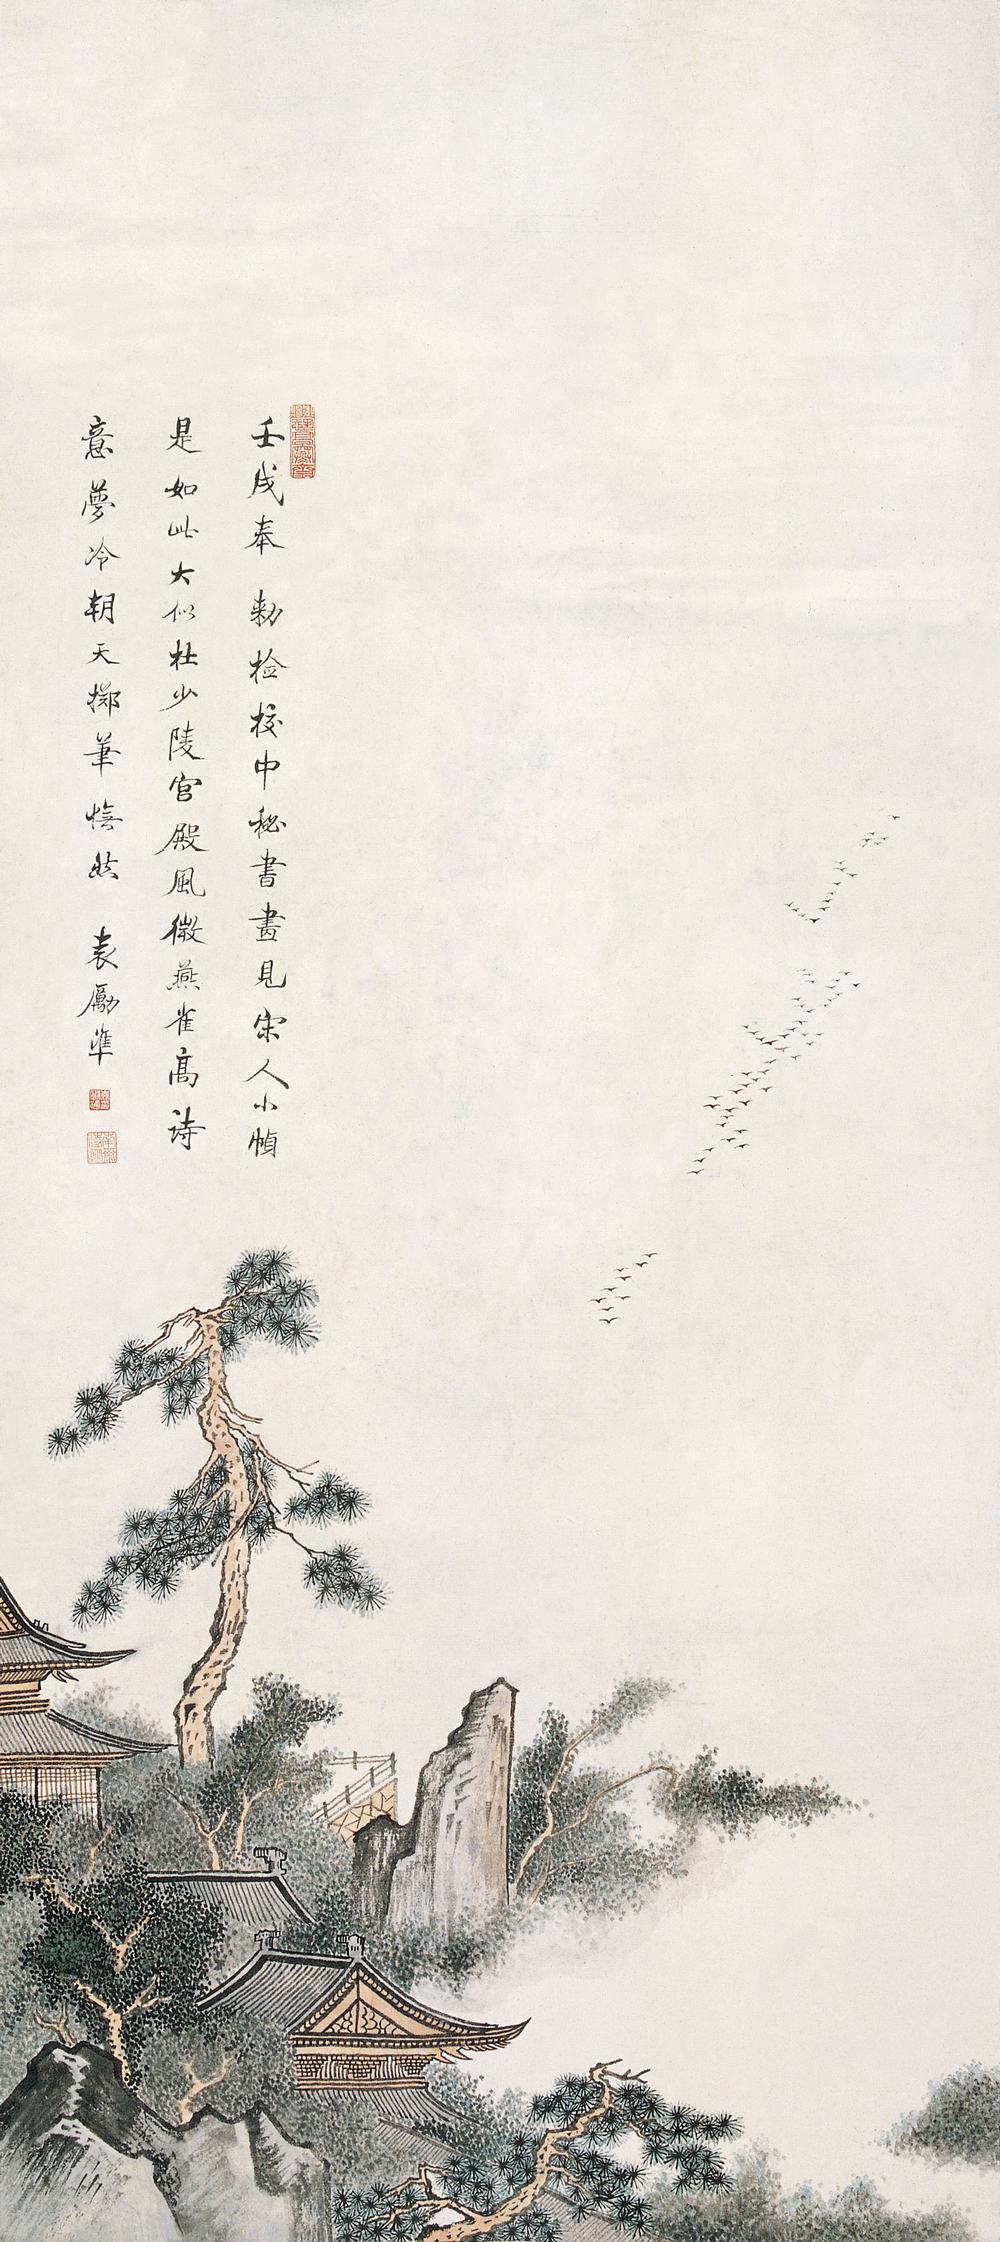 壬戌奉 勅检校中秘書畫見宋人小幀
是如此大似杜少陵宫殿風微燕雀高詩
意夢冷朝天擲筆憮然 袁勵準